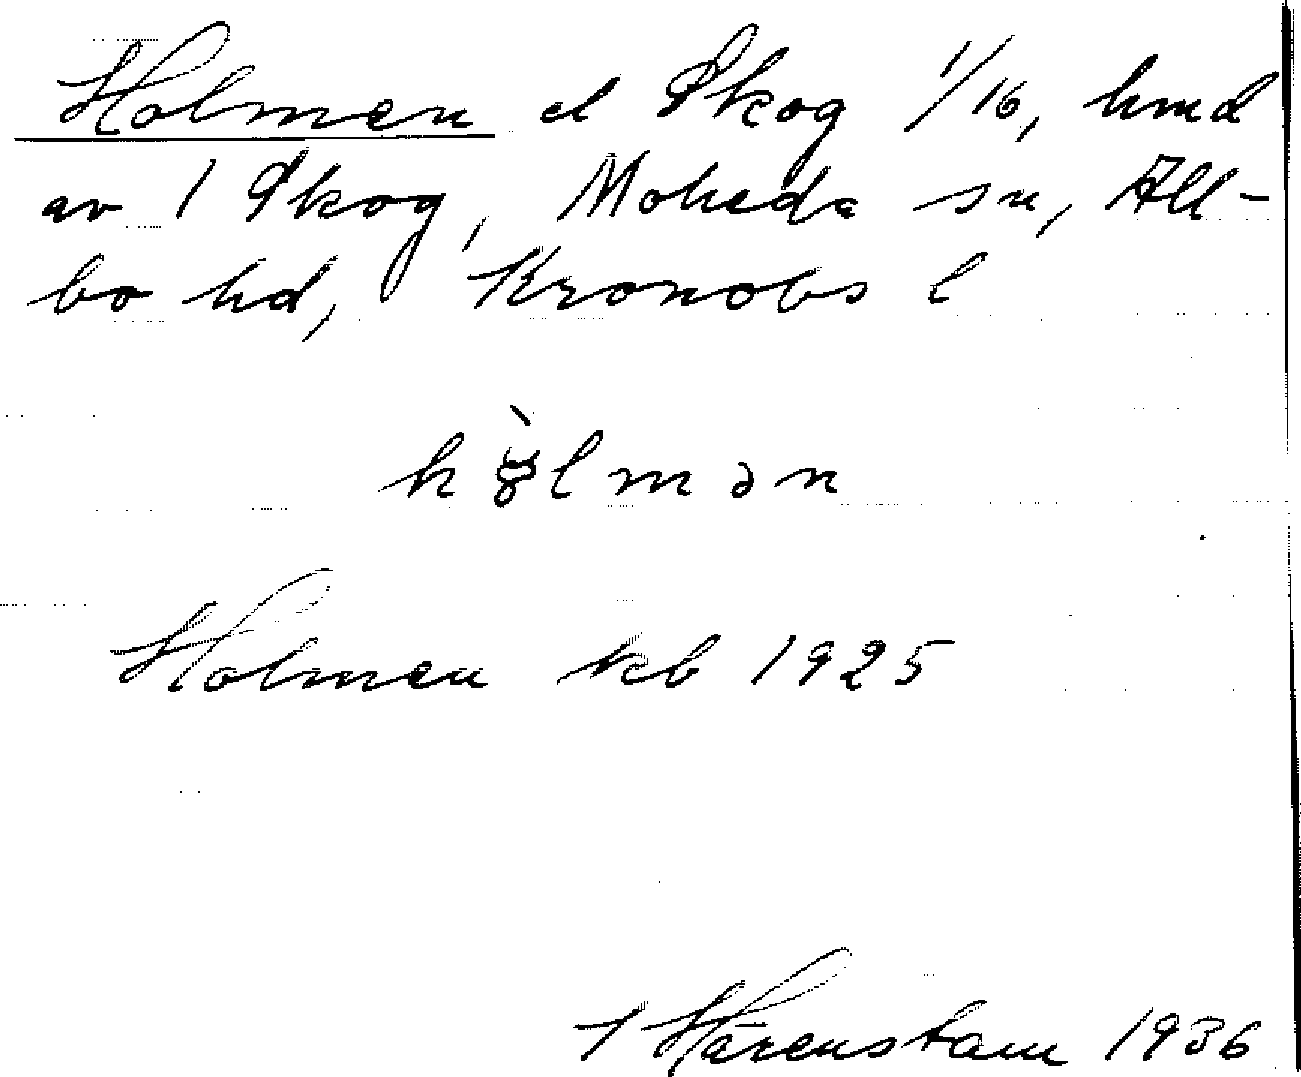 Holmen el Skog 1/16, hmd
av 1 Skog, Moheda sn, All-
bo hd, Kronobs l
Holmen kb 1925
Härenstam 1936